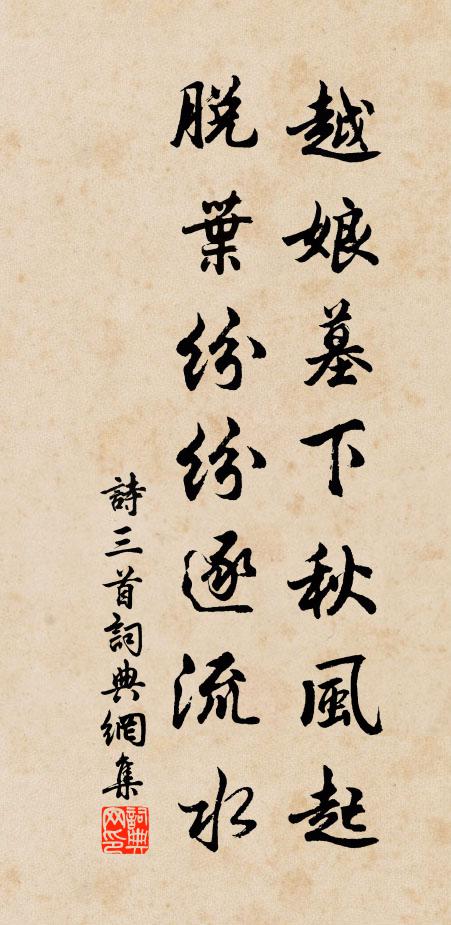 越娘墓下秋風起
脫葉紛紛逐流水
詩三首詞典網集
詞典网印